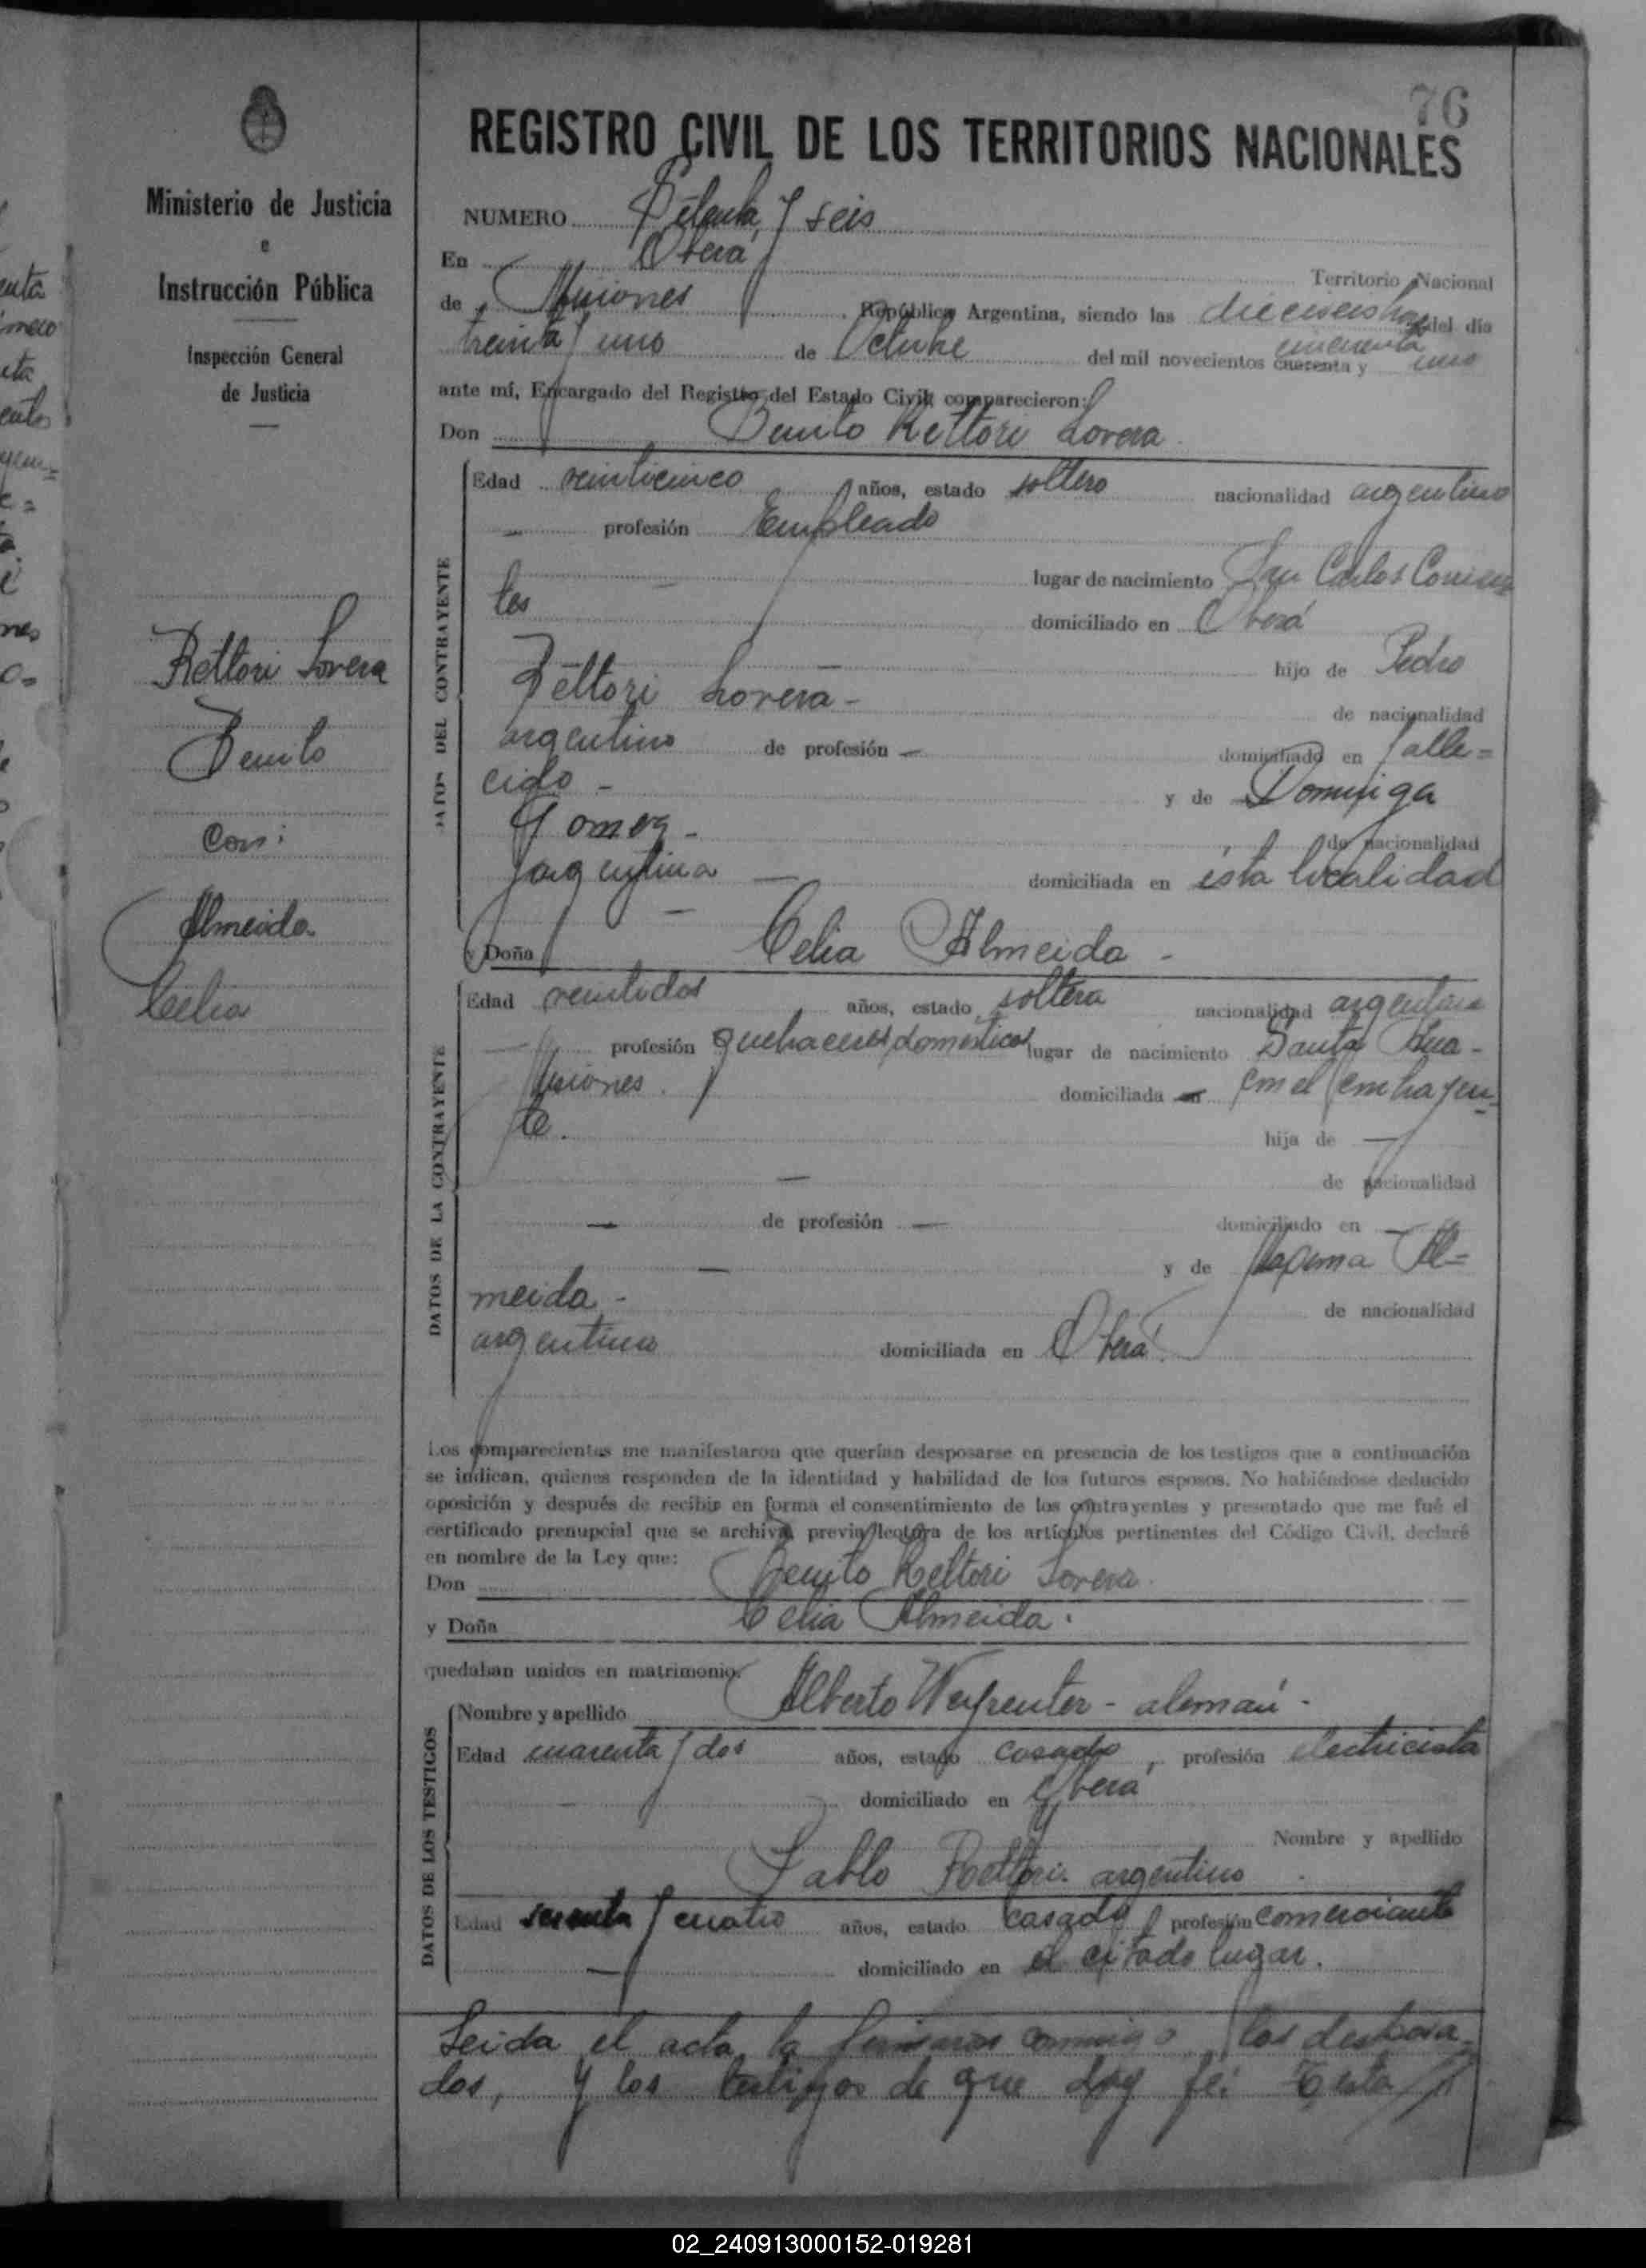 76
REGISTRO CIVIL DE LOS TERRITORIOS NACIONALES
Ministerio de Justicia
e
Instrucción Pública
Inspección General
de Justicia
Rettori Lovera
Benito
Con:
Almeida
Celia
NUMERO Setenta y seis
En Oberá Territorio Nacional
de Misiones República Argentina, siendo las dieciseis horas del día
treinta y uno de Octubre del mil novecientos cuarenta y cincuenta uno
ante mí, Encargado del Registro del Estado Civil, comparecieron:
Don Benito Rettori Lovera
DATOS DEL CONTRAYENTE
Edad veinticinco años, estado soltero nacionalidad argentino
— profesión Empleado
— lugar de nacimiento San Carlos Corrien
tes domiciliado en Oberá
— hijo de Pedro
Rettori Lovera - de nacionalidad
argentino de profesión — domiciliado en falle=
cido - y de Dominga
Gomez - de nacionalidad
argentina — domiciliada en ésta localidad
—
y Doña Celia Almeida -
DATOS DE LA CONTRAYENTE
Edad veintidos años, estado soltera nacionalidad argentina
— profesión quehaceres domesticos lugar de nacimiento Santa Ana -
Misiones. domiciliada en con el contrayen=
te. hija de —
— de nacionalidad
— de profesión — domiciliado en —
— y de Maxima Al=
meida - de nacionalidad
argentina domiciliada en Oberá.
Los comparecientes me manifestaron que querían desposarse en presencia de los testigos que a continuación
se indican, quienes responden de la identidad y habilidad de los futuros esposos. No habiéndose deducido
oposición y después de recibir en forma el consentimiento de los contrayentes y presentado que me fué el
certificado prenupcial que se archiva, previa lectura de los artículos pertinentes del Código Civil, declaré
en nombre de la Ley que:
Don Benito Rettori Lovera.
y Doña Celia Almeida.
quedaban unidos en matrimonio.
DATOS DE LOS TESTIGOS
Nombre y apellido Alberto - alemán -
Edad cuarenta y dos años, estado casado, profesión electricista
— domiciliado en Oberá
y Nombre y apellido
Pablo Rettori. argentino
Edad sesenta y cuatro años, estado casado profesión comerciante
— domiciliado en el citado lugar.
Leida el acta, la firmaron conmigo, los desposa=
dos, y los testigos de que doy fe: Testa
02_240913000152-019281